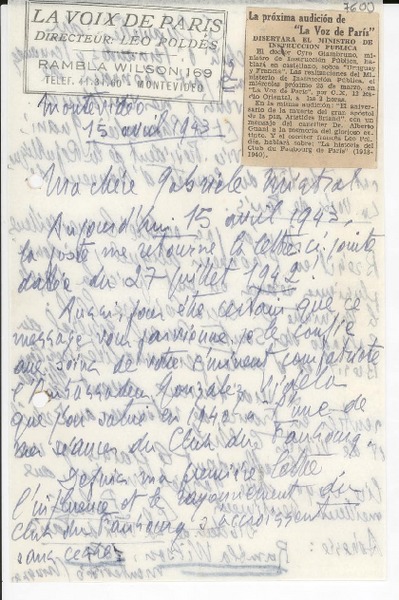 7600
LA VOIX DE PARIS
DIRECTEUR LÉO POLDÈS
RAMBLA WILSON 169
TELEF. 41.87.60 MONTEVIDEO
La próxima audición de
"La Voz de Paris"
DISERTARA EL MINISTRO DE
INSTRUCCION PUBLICA
El doctor Cyro Giambruno, mi
nistro de Instrucción Pública, ha-
blará en castellano, sobre "Uruguay
y Francia". Las realizaciones del Mi-
nisterio de Instrucción Pública, el
miércoles próximo 25 de marzo, en
"La Voz de Paris", por C X 24, Ra-
dio Oriental, a las 9 horas.
En la misma audición: "El aniversario
de la muerte del gran apóstol
de la paz, Aristides Briand" con un
mensaje del canciller Dr. Alberto
Guani a la memoria del glorioso es-
tadista. Y el escritor francés Leo Pol-
dés, hablará sobre: "La historia del
Club du Faubourg de Paris" (1918-
1940).
Montevideo
15 avril 1943
Ma chère Gabriela Mistral
Aujourd'hui 15 avril 1943,
la poste me retourne la lettre ci jointe
datée du 27 juillet 1942!
Aussi pour être certain que ce
message vous parvienne je le confie
aux soins de votre éminent compatriote
l'Ambassadeur Gonzalez Videla
que j'on salua en 1940 à l'une de
nos séances du Club du Faubourg.
Depuis ma première lettre
l'influence et le rayonnement du
Club du Faubourg s'accroissent
sans cesse